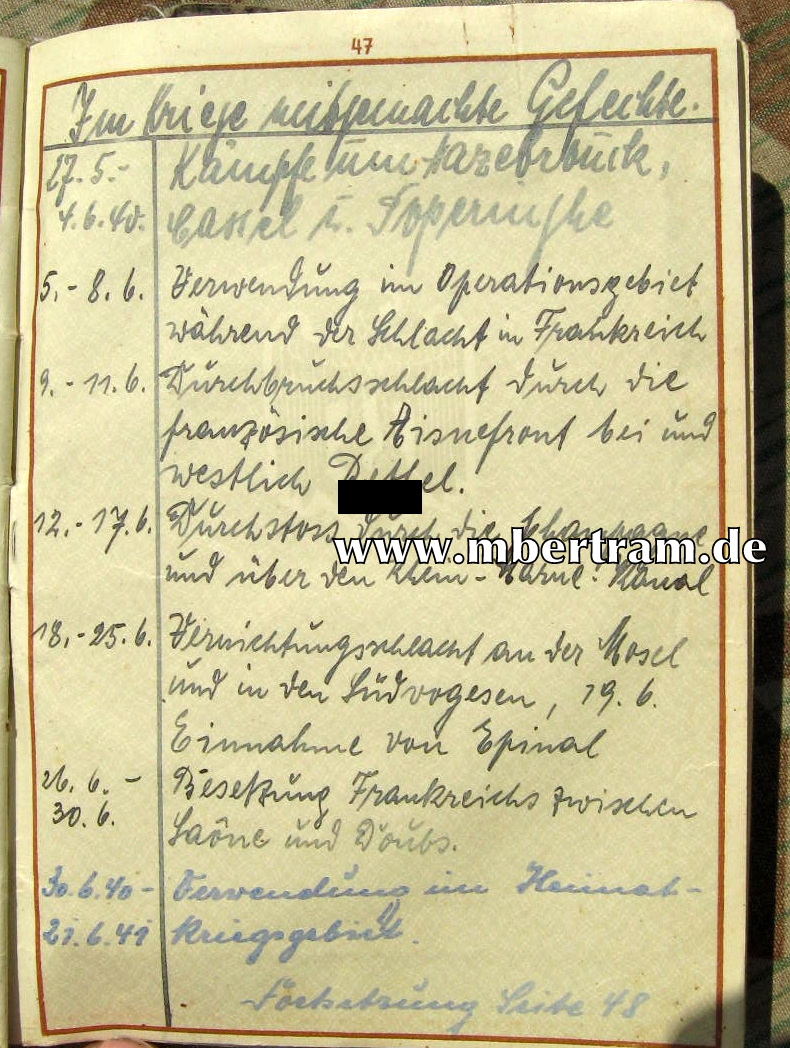 47
Im Kriege mitgemachte Gefechte.
27. 5. - Kämpfe um Hazebrouck,
4. 6. 40. Cassel u. Poperinghe
5. - 8. 6. Verwendung im Operationsgebiet
während der Schlacht in Frankreich
9. - 11. 6. Durchbruchsschlacht durch die
französische Aisnefront bei und
westlich Rethel.
12. - 17. 6. Durchstoss durch die Champagne
www.mbertram.de
und über den Rhein-Marne-Kanal
18. - 25. 6. Vernichtungsschlacht an der Mosel
und in den Südvogesen, 19. 6.
Einnahme von Epinal
26. 6. - Besetzung Frankreichs zwischen
30. 6. Saône und Doubs.
30. 6. 40 - Verwendung im Heimat-
21. 6. 41 kriegsgebiet.
Fortsetzung Seite 48